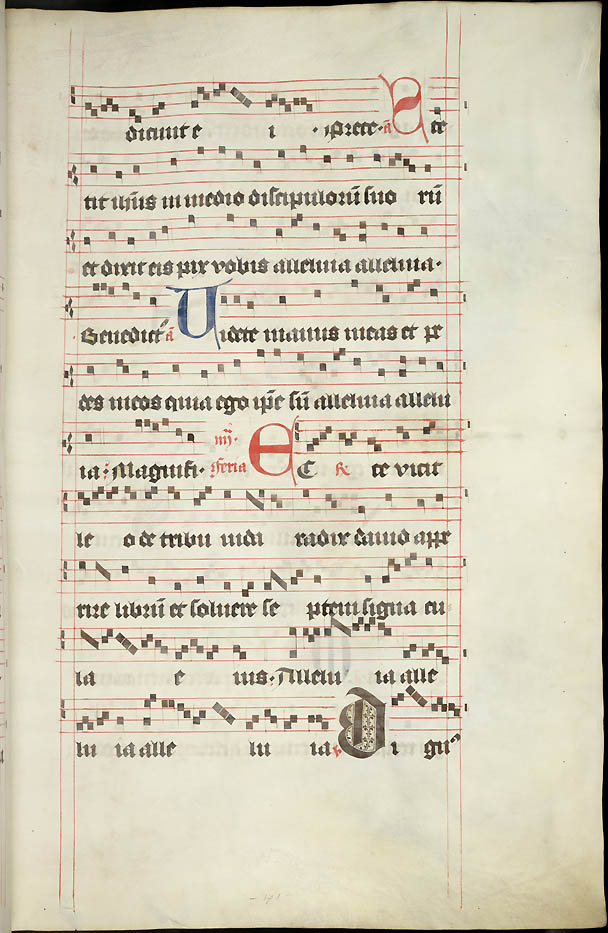 dicunt e i · prece · a Ste
tit ihūs in medio discipulorū suo rū
et dixit eis pax vobis alleluia alleluia ·
Benedictꝰ a Uidete manus meas et pe
des meos quia ego ipē sū alleluia allelu
ia · Magnifi · iiij · feria EC ꝶ ce vicit
le o de tribu iuda radix dauid ape
rire librū et soluere se ptem signa cu
la e ius · Allelu ia alle
lu ia alle lu ia ꝟ Di gnꝰ